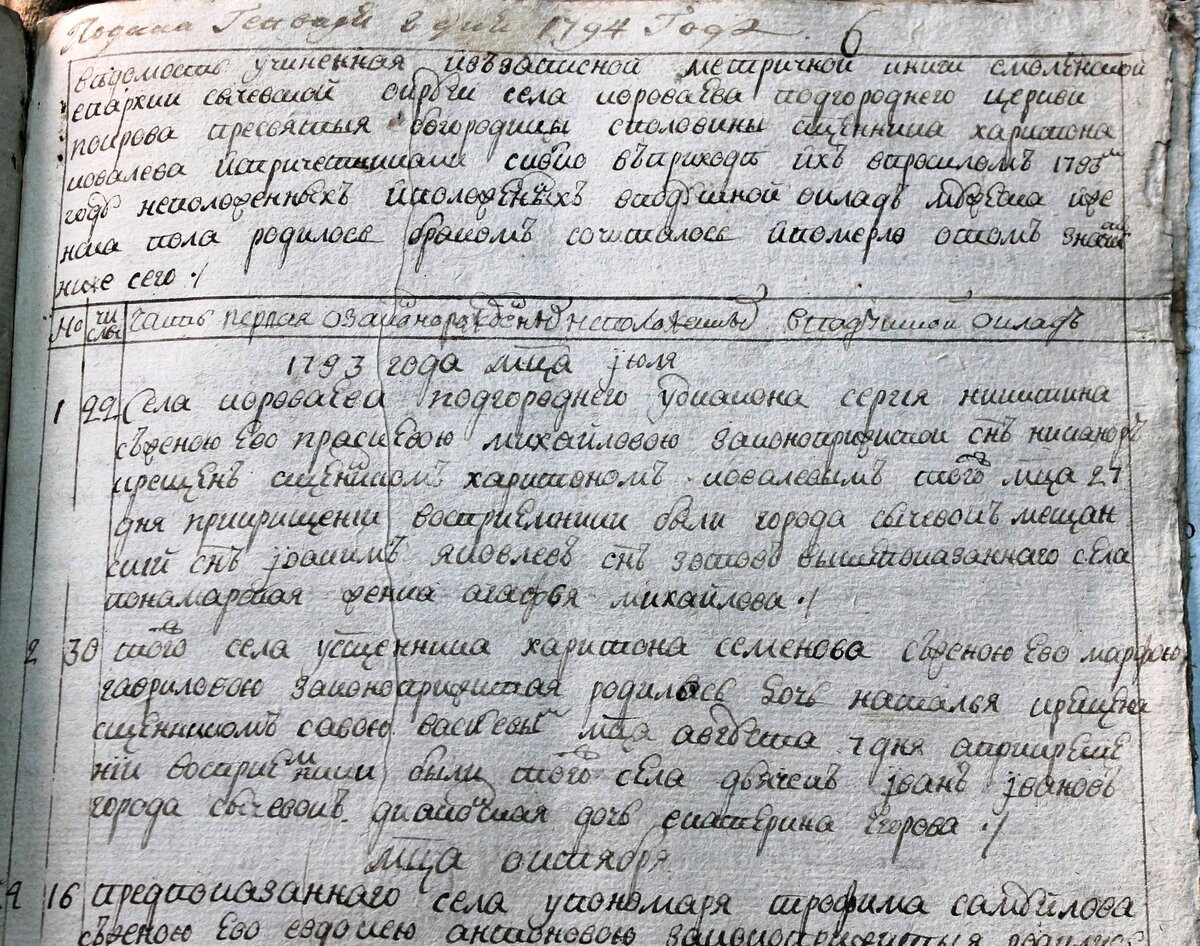 Подана Генваря в дни 1794 Года. 6
вѣдомость учиненная изъ записной метричной книги смоленской
епархии сычевской округи села короваева подгороднего церкви
покрова пресвятыя богородицы споловины сщенника харитона
ковалева ипричетниками сколко въприходѣ ихъ впрошломъ 1793м
годѣ неположенныхъ иположенныхъ вподушной окладъ мужеска иже
нска пола родилось бракомъ сочиталось ипомерло отомъ значит
ниже сего ./
No числы часть первая озаконорожденныхъ неположенныхъ вподушной окладъ
1793 года мца іюля
1 22 Села короваева подгороднего удиакона сергия никитина
съженою ево прасковею михайловою законоприжитой снъ никаноръ
крещенъ сщенникомъ харитономъ ковалевымъ того мца 27
дня прикрищении восприемники были города сычевокъ мещан
ский снъ іоакимъ яковлевъ снъ зотовъ вышепоказаннаго села
понамарская женка агафья михайлова ./
2 30 того села усщенника харитона семенова съженою ево марфою
гавриловою законоприжитая родилась дочь наталья крещена
сщенникомъ савою васильевым мца августа 7 дня априкреще
нии восприемники были того села дьячекъ іванъ івановъ
города сычевокъ диаконская дочь екатерина егорова ./
мца октября
16 предпоказаннаго села упономаря трофима самуйлова
съженою ево евдокиею антоновою законоприжитыя родилися